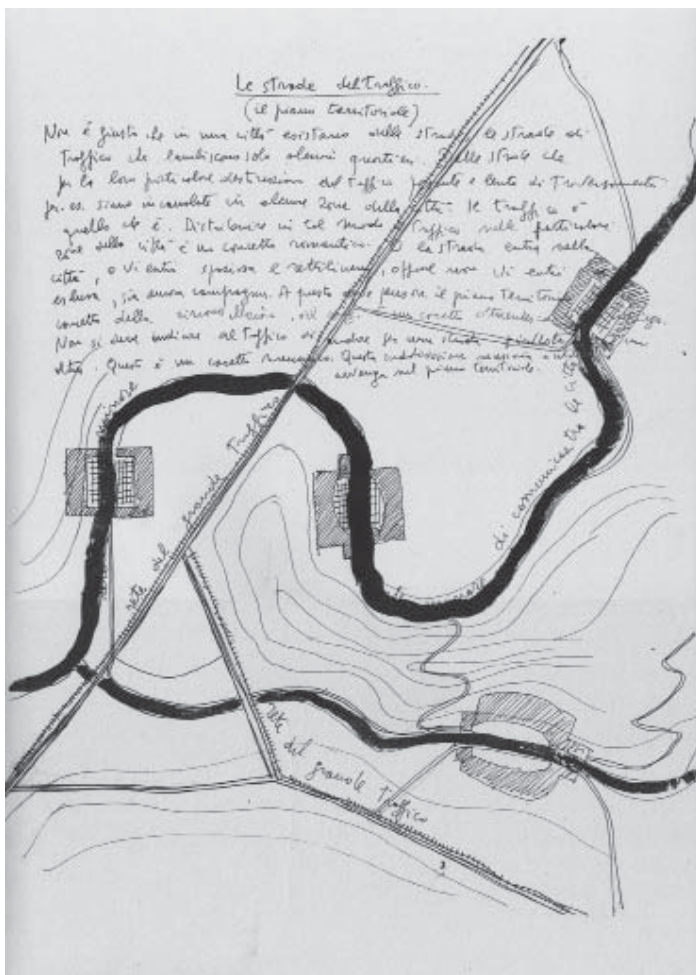 Le strade del traffico.
(il piano territoriale)
Non è giusto che in una città esistano delle strade, le strade di
traffico che lambiscono solo alcuni quartieri. Delle strade che
per la loro particolare destinazione del traffico pesante e lento di
p. es. siano incanalate in alcune zone della città. Il traffico è
quello che è. Distribuire in tal modo traffico nelle particolari
zone della città è un concetto romantico. O la strada entra nella
città, o vi entra spaziosa e rettilinea, oppure non vi entra
campagna. A questo pensare il piano
concetto della circonvallazione, un concetto
Non si deve indicare al traffico di andare per una strada piuttosto
altra. Questo è un concetto Questa suddivisione
avvenga sul piano territoriale.
rete del grande traffico
di comunicaz. tra le città
rete del grande traffico